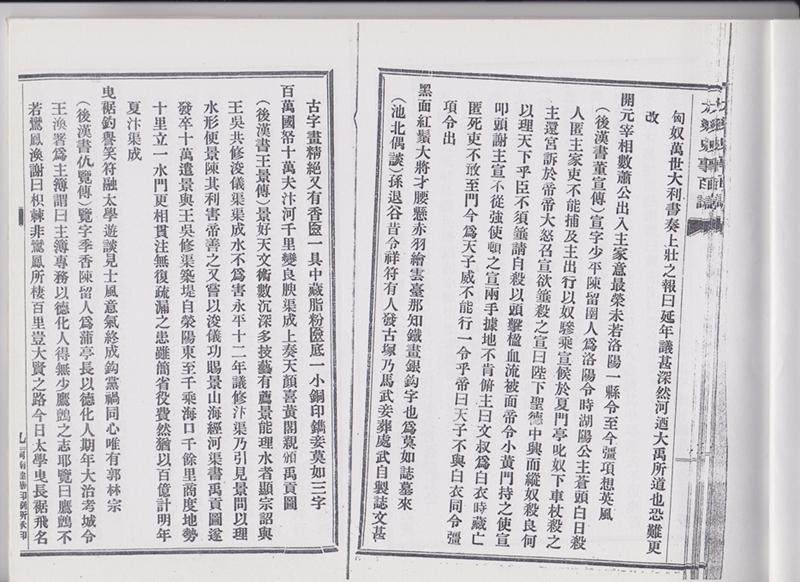 匈奴萬世大利書奏上壯之報曰延年議甚深然河迺大禹所道也恐難更
改
開元宰相數蕭公出入主家意最榮未若洛陽一縣令至今彊項想英風
（後漢書董宣傳）宣字少平陳留圉人為洛陽令時湖陽公主蒼頭白日殺
人匿主家吏不能捕及主出行以奴驂乘宣候於夏門亭叱奴下車杖殺之
主還宮訴於帝帝大怒召宣欲箠殺之宣曰陛下聖德中興而縱奴殺良何
以理天下乎臣不須箠請自殺以頭擊楹血流被面帝令小黃門持之使宣
叩頭謝主宣不從強使頓之宣兩手據地不肯俯主曰文叔為白衣時藏亡
匿死吏不敢至門今為天子威不能行一令乎帝曰天子不與白衣同令彊
項令出
黑面紅鬚大將才腰懸赤羽繪雲臺那知鐵畫銀鈎字也為莫如誌墓來
（池北偶談）孫退谷昔令祥符有人發古塚乃馬武妾葬處武自製誌文甚
古字畫精絕又有香匳一具中藏脂粉匳底一小銅印鐫妾莫如三字
百萬國帑十萬夫汴河千里變良腴渠成上奏天顏喜黃閣親頒禹貢圖
（後漢書王景傳）景好天文術數沉深多技藝有薦景能理水者顯宗詔與
王吳共修浚儀渠渠成水不為害永平十二年議修汴渠乃引見景問以理
水形便景陳其利害帝善之又嘗以浚儀功賜景山海經河渠書禹貢圖遂
發卒十萬遣景與王吳修渠築堤自滎陽東至千乘海口千餘里商度地勢
十里立一水門更相貫注無復疏漏之患雖簡省役費然猶以百億計明年
夏汴渠成
曳裾釣譽笑符融太學遊談見士風意氣終成鈎黨禍同心唯有郭林宗
（後漢書仇覽傳）覽字季香陳留人為蒲亭長以德化人期年大治考城令
王渙署為主簿謂曰主簿專務以德化人得無少鷹鸇之志耶覽曰鷹鸇不
若鸞鳳渙謝曰枳棘非鸞鳳所棲百里豈大賢之路今日太學曳長裾飛名
九